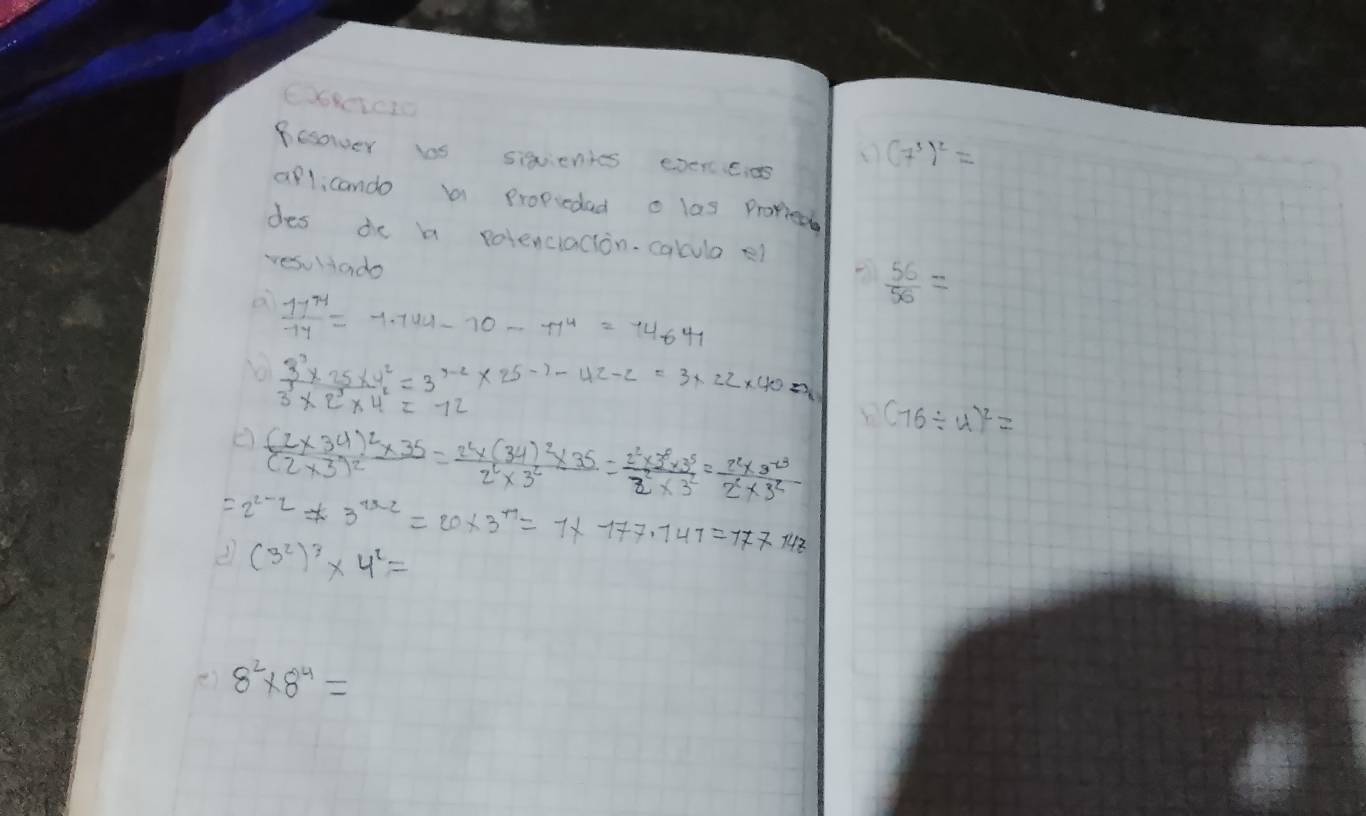 EJERCICIO
Resolver los siguientes ejercicios
aplicando la Propiedad o las Propieda
des de la potenciación. calcula el
resultado
a) 11¹⁴/14 = 1.144 - 10 - 11⁴ = 14641
b) 3³ × 25 × 4² / 3² × 2³ × 4² = 3³⁻² × 25-3 - 42-2 = 3 × 22 × 40 =
= 12
c) (2×34)² × 35 / (2×3)² = 2² × (34)² × 35 / 2² × 3² = 2² × 3⁸ × 3⁵ / 2² × 3² = 2² × 3¹³ / 2² × 3²
= 2²⁻² × 3¹³⁻² = 20 × 3¹¹ = 1 × 177.147 = 177 147
d) (3²)³ × 4² =
e) 8² × 8⁴ =
(7³)² =
56/56 =
(16 ÷ 4)² =